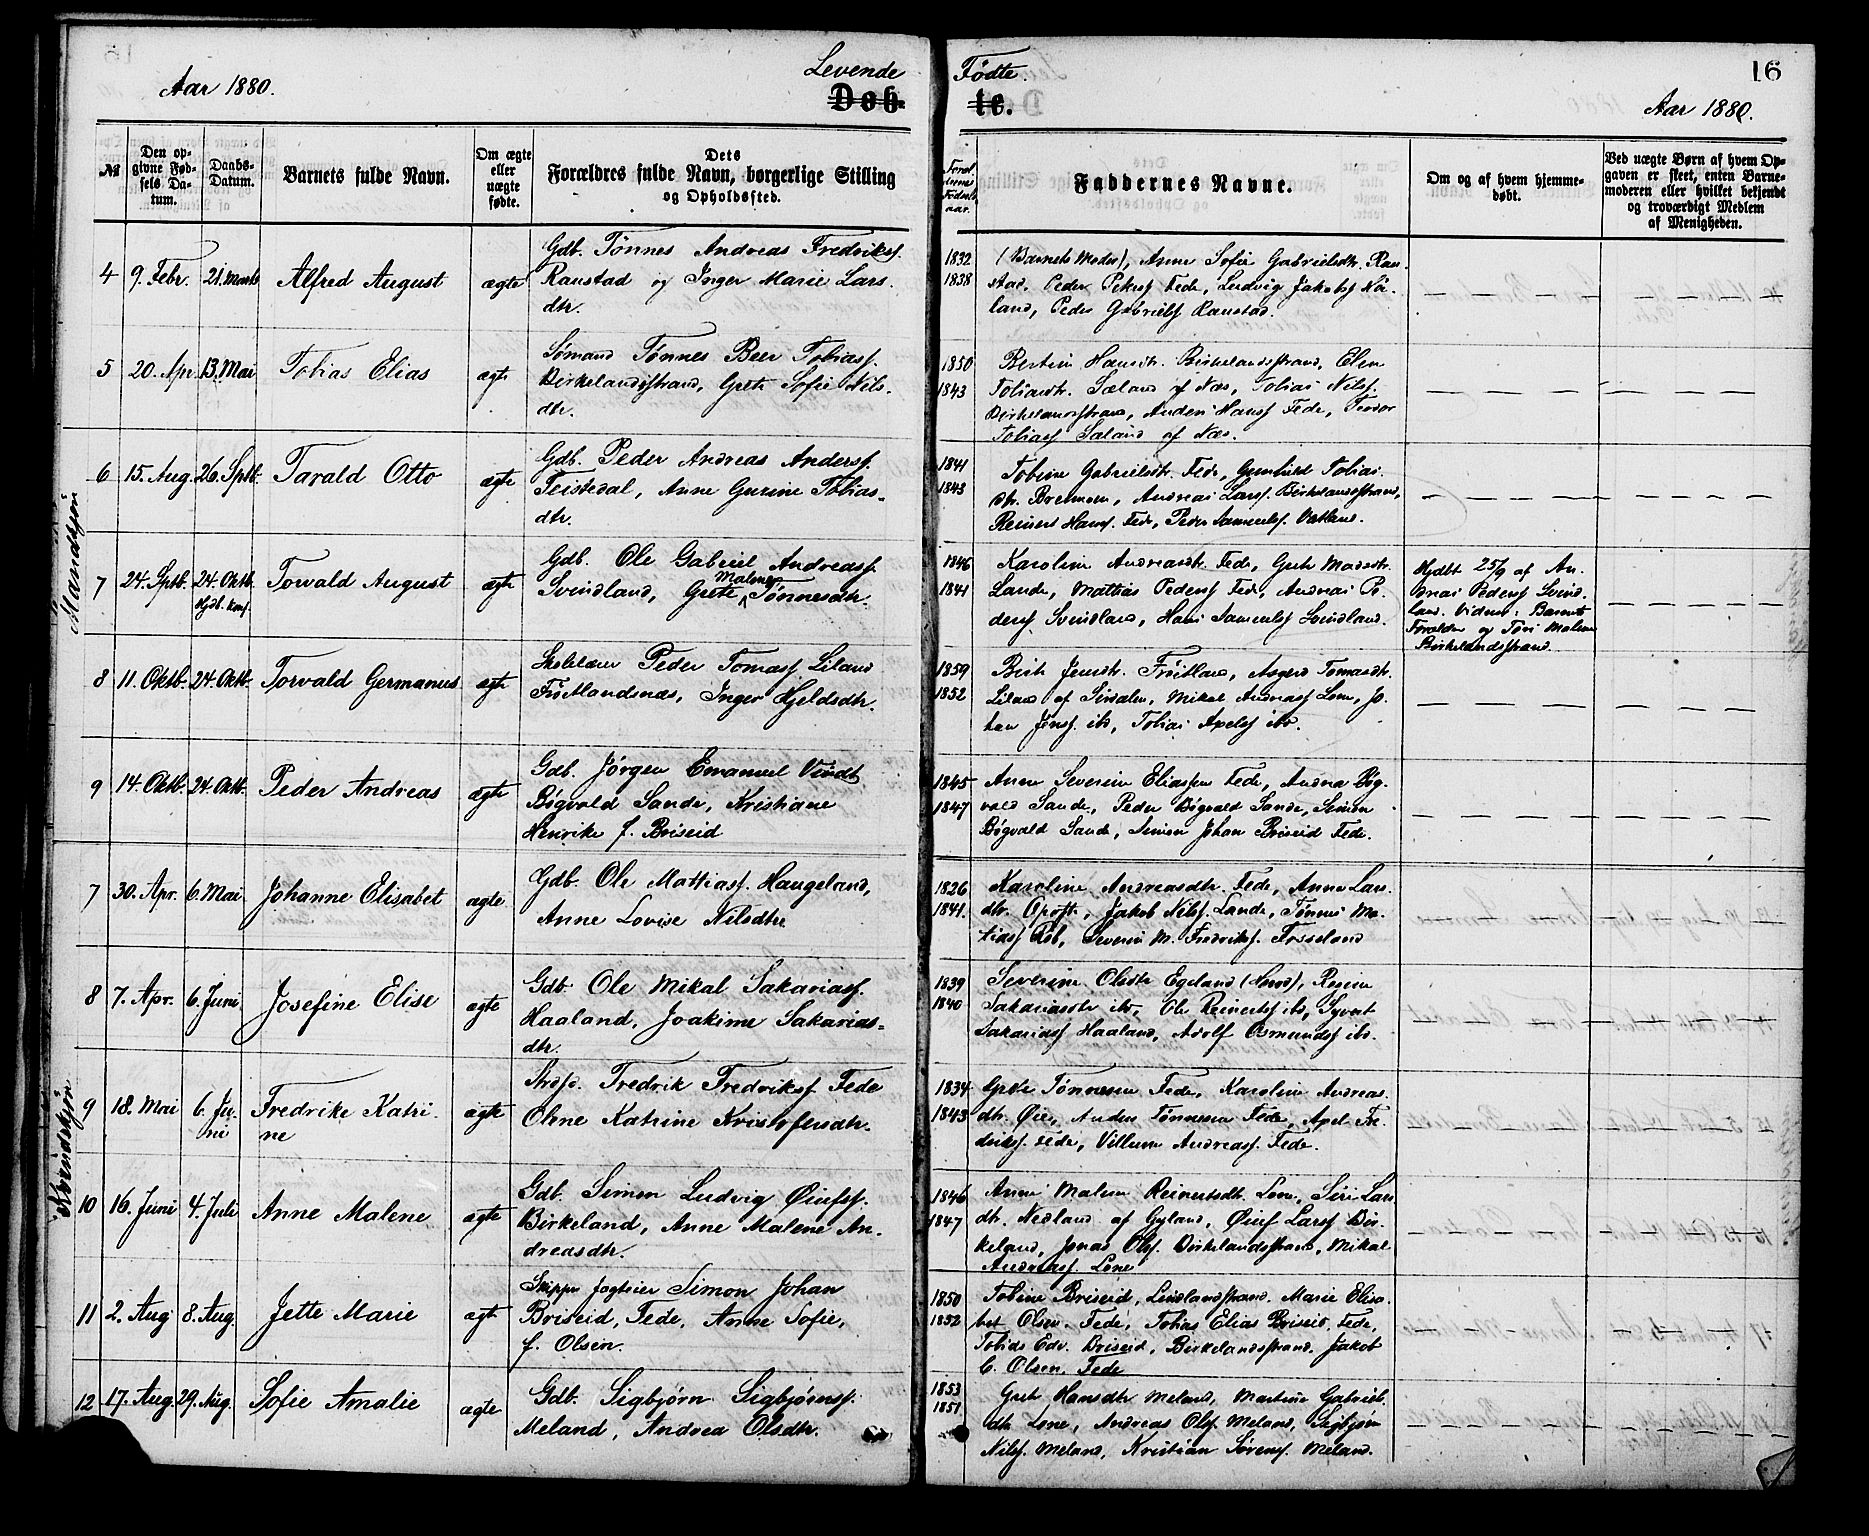 Aar 1880.
Levende
Døb-
Fødte.
te.
16
Aar 1880.
№
Den op-
givne Fød-
sels Da-
tum.
Daabs-
Datum.
Barnets fulde Navn.
Om ægte
eller
uægte
fødte.
Dets
Forældres fulde Navn, borgerlige Stilling
og Opholdssted.
Foræl
drenes
Fødsels
aar.
Faddernes Navne.
Om og af hvem hjemme-
døbt.
Ved uægte Børn af hvem Op-
gaven er skeet, enten Barne-
moderen eller hvilket bekjendt
og troværdigt Medlem
af Menigheden.
Mandkjøn
4 9. Febr. 21. Marts Alfred August ægte
Gdb. Tønnes Andreas Fredriksf.
Raustad og Inger Marie Lars-
dtr.
1832
1838
(Barnets Moder), Anne Sofie Gabrielsdtr. Rau-
stad. Peder Peters. Fede, Ludvig Jakobsf
land, Peder Gabrielsf Raustad.
5 20. Apr. 13. Mai Tobias Elias ægte
Sømand Tønnes Beer Tobiasf.
Birkelandsstrand, Grete Sofie Nils-
dtr.
1850
1843
Bertine Hansdtr. Birkelandsstrand, Elen
Tobiasdtr. Sæland af Næs, Tobias Nilsf.
Birkelandsstrand, Anders Hansf Fede, Teodor
Tobiasf Sæland af Næs.
6 15. Aug. 26. Sptb. Tarald Otto ægte
Gdb. Peder Andreas Andersf.
Feistedal, Anne Gurine Tobias-
dtr.
1841
1843
Tobine Gabrielsdtr. Fede, Gunhild Tobias-
dtr. Bremnes, Andreas Larsf. Birkelandsstrand,
Reinert Hansf. Fede, Peder Samuelsf. Vatland.
7 24. Sptb. 24. Oktb. Torvald August ægte
Hjdb. konf.
Gdb. Ole Gabriel Andreasf.
Svindland, Grete Malene Tønnesdtr.
1846
1841
Karoline Andreasdtr. Fede, Grete Madsdtr.
Lande, Mathias Pedersf Fede, Andreas Pe-
dersf Svindland, Hans Samuelsf Svindland.
Hjdbt 25/9 af An-
dreas Pedersf Svind-
land. Vidner: Barnets
Forældre og Tøri Malene
Birkelandsstrand.
8 11. Oktb. 24. Oktb. Torvald Germanius ægte
Skolelærer Peder Tomasf Liland
Frøitlandsnæs, Inger Hjeldsdtr.
1859
1852
Berte Jensdtr. Frøitland, Asgerd Tomasdtr.
Liland af Siredalen, Mikal Andreasf Lone, Jo-
han Jensf. ibd, Tobias Axelsf ibd.
9 14. Oktb. 24. Oktb. Peder Andreas ægte
Gdb. Jørgen Emanuel Vindt
Bøgvald Sande, Kristiane
Henrike f. Briseid
1845
1847
Anne Severine Eliassen Fede, Andrea Bøg-
vald Sande, Peder Bøgvald Sande, Simon
Bøgvald Sande, Simon Johan Briseid Fede.
Kvindekjøn
7 30. Apr. 6. Mai Johanne Elisabet ægte
Gdb. Ole Mattiasf. Haugeland,
Anne Lovise Nilsdtr.
1826
1841.
Karoline Andreasdtr. Fede, Anne Lars-
dtr. Opofte, Jakob Nilsf. Lande, Tønnes Ma-
tiasf Rob, Severin M. Fredriksf. Fosseland
8 7. Apr. 6. Juni Josefine Elise ægte
Gdb. Ole Mikal Sakariasf.
Haaland, Joakime Sakarias-
dtr.
1839
1840
Severine Olsdtr Egeland, Regine
Sakariasdtr ibd, Ole Reinertsf ibd, Syvert
Sakariasf Haaland, Adolf Osmundsf ibd.
9 18. Mai 6. Ju- Fredrike Katri- ægte
ni ne
Fredrik Fredriksf. Fede
Oline Katrine Kristofersdtr.
1834
1843
Grete Tønnesen Fede, Karoline Andreas-
dtr. Øie, Anders Tønnesen Fede, Axel Fre-
driksf. Fede, Villum Andreasf. Fede.
10 16. Juni 4. Juli Anne Malene ægte
Gdb. Simon Ludvig Øiufsf.
Birkeland, Anne Malene An-
dreasdtr.
1846
1847
Anne Malene Reinertsdtr. Lone, Siri Lars-
dtr. Nedland af Gyland, Øiuf Larsf Bir-
keland, Jonas Olsf. Birkelandsstrand, Mikal
Andreasf. Lone
11 2. Aug 8. Aug. Jette Marie ægte
Skipper Jagteier Simon Johan
Briseid, Fede, Anne Sofie,
f. Olsen.
1850
1852
Tobine Briseid, Lindlandsstrand. Marie Elisa-
bet Olsen. Fede, Tobias Elias Briseid, Fede,
Tobias Edv. Briseid, Birkelandsstrand. Jakob
C. Olsen. Fede
12 17. Aug. 29. Aug. Sofie Amalie ægte
Gdb. Sigbjørn Sigbjørnsf.
Meland, Andrea Olsdtr.
1853
1851
Grete Hansdtr Meland, Martine Gabriels-
dtr Lone, Andreas Olsf Meland, Sigbjørn
Nilsf. Meland, Kristian Sørensf. Meland.